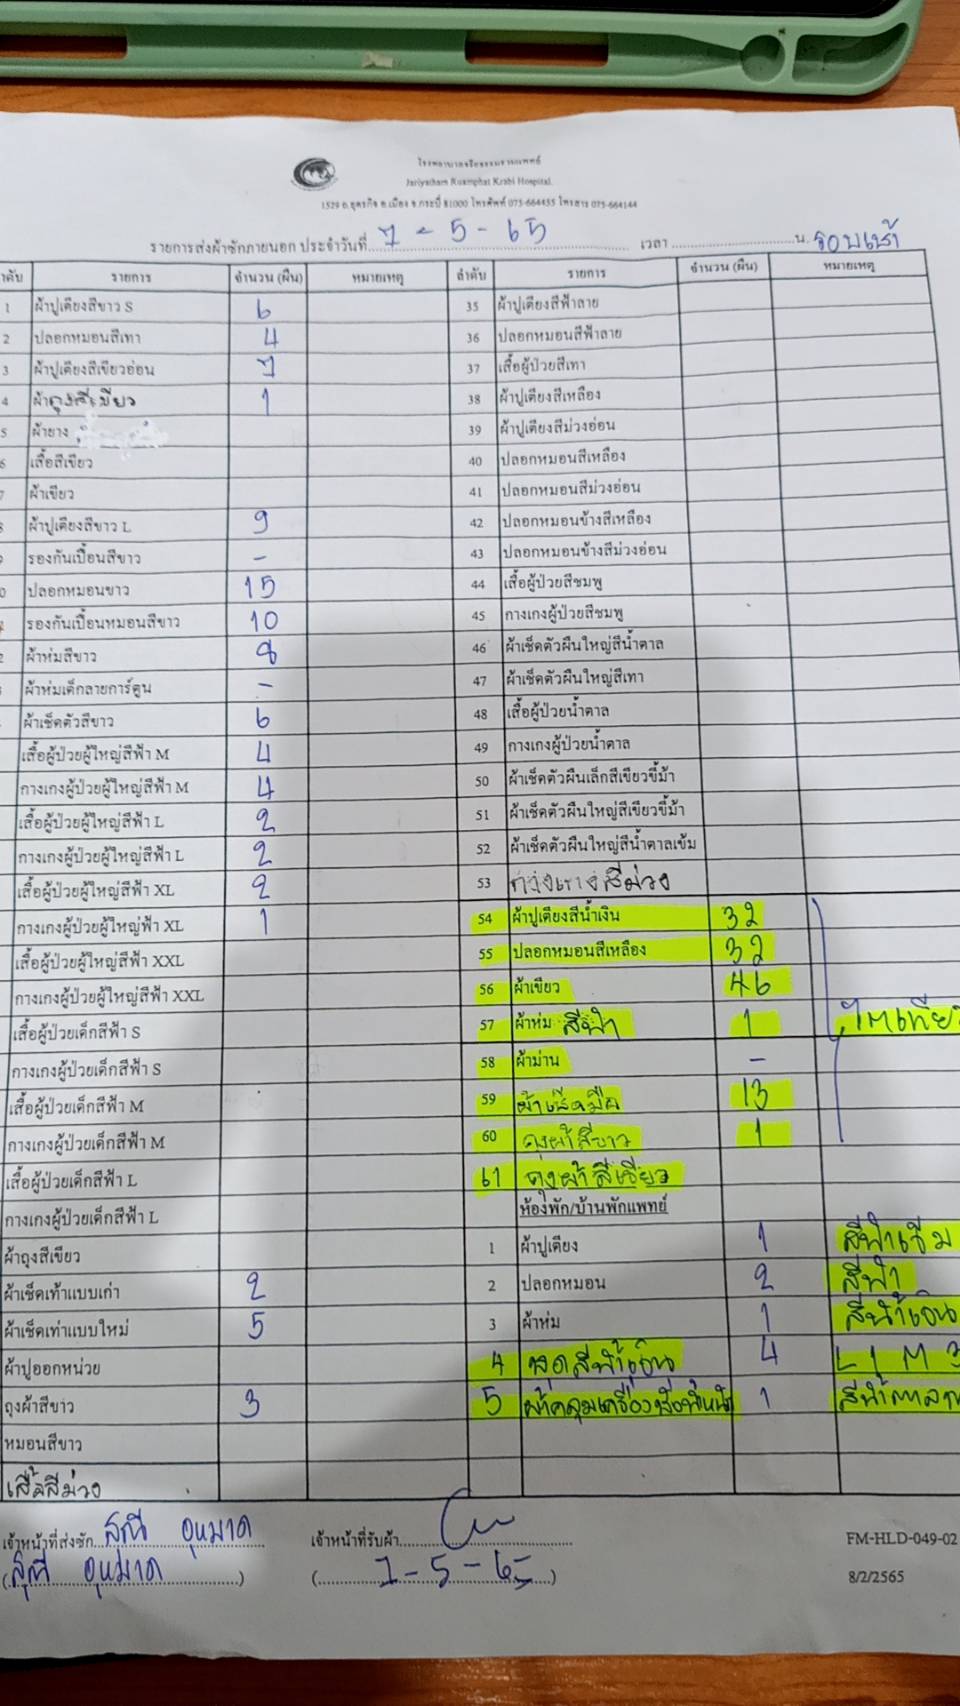 โรงพยาบาลจริยธรรมรวมแพทย์
Jariyatham Ruamphat Krabi Hospital.
1529 ถ.อุตรกิจ อ.เมือง จ.กระบี่ 81000 โทรศัพท์ 075-664455 โทรสาร 075-664144
รายการส่งผ้าซักภายนอก ประจำวันที่ 7-5-65 เวลา น. รอบเช้า
รายการ จำนวน (ผืน) หมายเหตุ ลำดับ รายการ จำนวน (ผืน) หมายเหตุ
1 ผ้าปูเตียงสีขาว S 6 35 ผ้าปูเตียงสีฟ้าลาย
2 ปลอกหมอนสีเทา 4 36 ปลอกหมอนสีฟ้าลาย
3 ผ้าปูเตียงสีเขียวอ่อน 7 37 เสื้อผู้ป่วยสีเทา
4 ผ้าถุงสีเขียว 1 38 ผ้าปูเตียงสีเหลือง
5 ผ้ายาง 39 ผ้าปูเตียงสีม่วงอ่อน
เสื้อสีเขียว 40 ปลอกหมอนสีเหลือง
ผ้าเขียว 41 ปลอกหมอนสีม่วงอ่อน
ผ้าปูเตียงสีขาว L 9 42 ปลอกหมอนข้างสีเหลือง
รองกันเปื้อนสีขาว - 43 ปลอกหมอนข้างสีม่วงอ่อน
ปลอกหมอนขาว 15 44 เสื้อผู้ป่วยสีชมพู
รองกันเปื้อนหมอนสีขาว 10 45 กางเกงผู้ป่วยสีชมพู
ผ้าห่มสีขาว 8 46 ผ้าเช็ดตัวผืนใหญ่สีน้ำตาล
ผ้าห่มเด็กลายการ์ตูน - 47 ผ้าเช็ดตัวผืนใหญ่สีเทา
ผ้าเช็ดตัวสีขาว 6 48 เสื้อผู้ป่วยน้ำตาล
เสื้อผู้ป่วยผู้ใหญ่สีฟ้า M 4 49 กางเกงผู้ป่วยน้ำตาล
กางเกงผู้ป่วยผู้ใหญ่สีฟ้า M 4 50 ผ้าเช็ดตัวผืนเล็กสีเขียวขี้ม้า
เสื้อผู้ป่วยผู้ใหญ่สีฟ้า L 2 51 ผ้าเช็ดตัวผืนใหญ่สีเขียวขี้ม้า
กางเกงผู้ป่วยผู้ใหญ่สีฟ้า L 2 52 ผ้าเช็ดตัวผืนใหญ่สีน้ำตาลเข้ม
เสื้อผู้ป่วยผู้ใหญ่สีฟ้า XL 2 53 กางเกงสีม่วง
กางเกงผู้ป่วยผู้ใหญ่สีฟ้า XL 1 54 ผ้าปูเตียงสีน้ำเงิน 32
เสื้อผู้ป่วยผู้ใหญ่สีฟ้า XXL 55 ปลอกหมอนสีเหลือง 32
กางเกงผู้ป่วยผู้ใหญ่สีฟ้า XXL 56 ผ้าเขียว 46
เสื้อผู้ป่วยเด็กสีฟ้า S 57 ผ้าห่ม สีฟ้า 1 ไตเทียม
กางเกงผู้ป่วยเด็กสีฟ้า S 58 ผ้าม่าน -
เสื้อผู้ป่วยเด็กสีฟ้า M 59 ผ้าเช็ดมือ 13
กางเกงผู้ป่วยเด็กสีฟ้า M 60 ถุงผ้าสีขาว 1
เสื้อผู้ป่วยเด็กสีฟ้า L 61 ถุงผ้าสีเขียว
กางเกงผู้ป่วยเด็กสีฟ้า L ห้องพัก/บ้านพักแพทย์
ผ้าถุงสีเขียว 1 ผ้าปูเตียง 1 สีฟ้าเข้ม
ผ้าเช็ดเท้าแบบเก่า 2 2 ปลอกหมอน 2 สีฟ้า
ผ้าเช็ดเท้าแบบใหม่ 5 3 ผ้าห่ม 1 สีน้ำเงิน
ผ้าปูออกหน่วย 4 ชุดสีน้ำเงิน 4 L 1 M 3
ถุงผ้าสีขาว 3 5 ผ้าคลุมเครื่องชั่งน้ำหนัก 1 สีน้ำตาล
หมอนสีขาว
เสื้อสีม่วง
เจ้าหน้าที่ส่งซัก สุณี อุหมาด เจ้าหน้าที่รับผ้า FM-HLD-049-02
(สุณี อุหมาด) (7-5-65) 8/2/2565